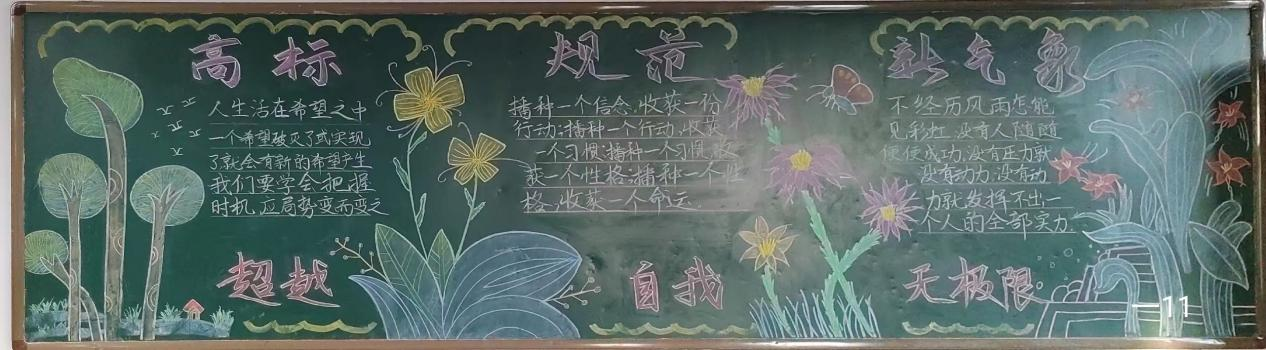 高标
人生活在希望之中
一个希望破灭了或实现
了就会有新的希望产生
我们要学会把握
时机,应局势变而变之
规范
播种一个信念,收获一份
行动;播种一个行动,收获
一个习惯;播种一个习惯,收
获一个性格;播种一个性
格,收获一个命运.
新气象
不经历风雨怎能
见彩虹,没有人随随
便便成功,没有压力就
没有动力,没有动
力就发挥不出一
个人的全部实力.
超越
自我
无极限
11